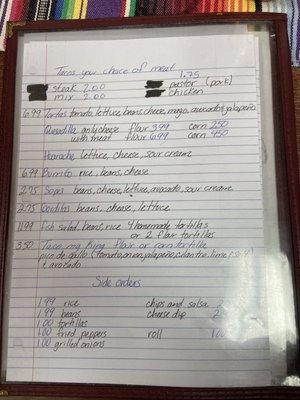 Tacos your choice of meat
1.75
steak 2.00 pastor (pork)
mix 2.00 chicken
6.99 Tortas tomato, lettuce, beans, cheese, mayo, avocado, jalapeño
Quesadilla only cheese flour 3.99 corn 2.50
with meat flour 6.99 corn 4.50
Huarache lettuce, cheese, sour cream
6.99 Burrito rice, beans, cheese
2.75 Sopa beans, cheese, lettuce, avocado, sour cream
2.75 Gorditas beans, cheese, lettuce
11.99 Fish salad, beans, rice 4 homemade tortillas
or 2 flour tortillas
3.50 Taco mg King flour or corn tortilla
pico de gallo (tomato, onion, jalapeño, cilantro, lime + salt)
+ avocado
Side orders
1.99 rice chips and salsa 2
1.99 beans cheese dip 2
1.00 tortillas
1.00 fried peppers roll 1.00
1.00 grilled onions